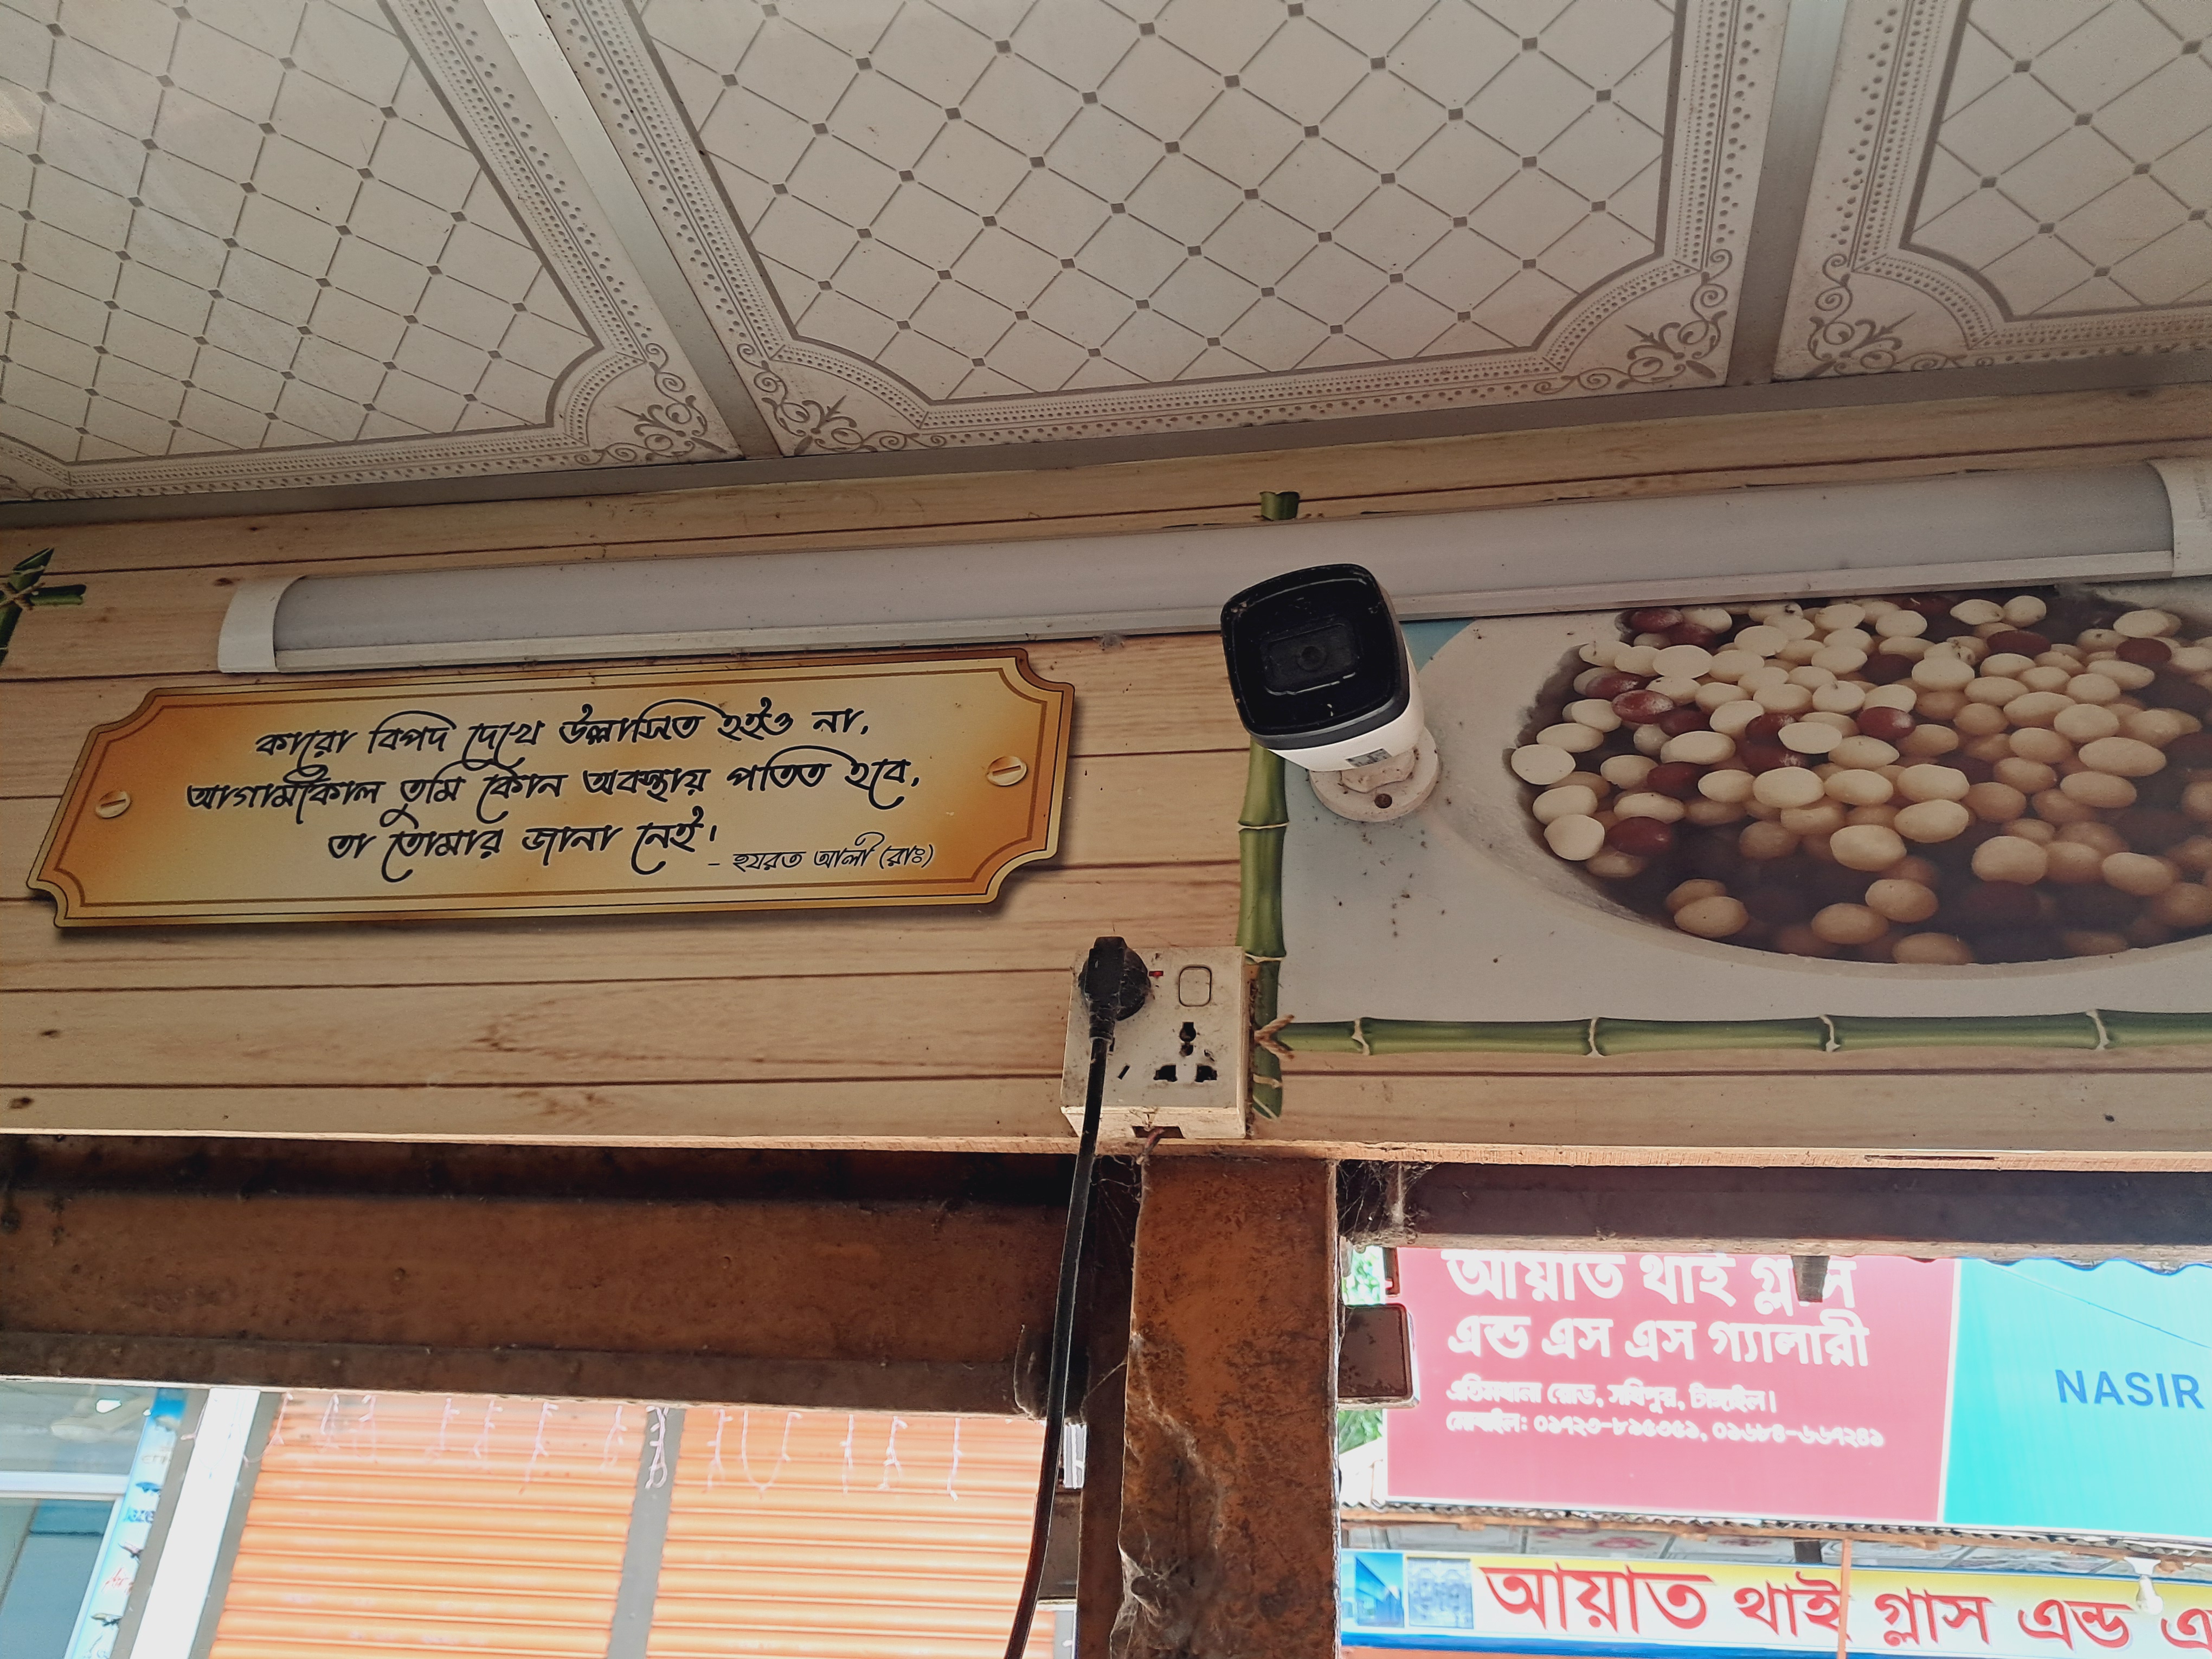 কারো বিপদ দেখে উল্লাসিত হইও না,
আগামীকাল তুমি কোন অবস্থায় পতিত হবে,
তা তোমার জানা নেই।
- হযরত আলী (রাঃ)
আয়াত থাই গ্লাস
এন্ড এস এস গ্যালারী
এতিমখানা রোড, সখিপুর, টাঙ্গাইল।
মোবাইল:
NASIR
আয়াত থাই গ্লাস এন্ড এ